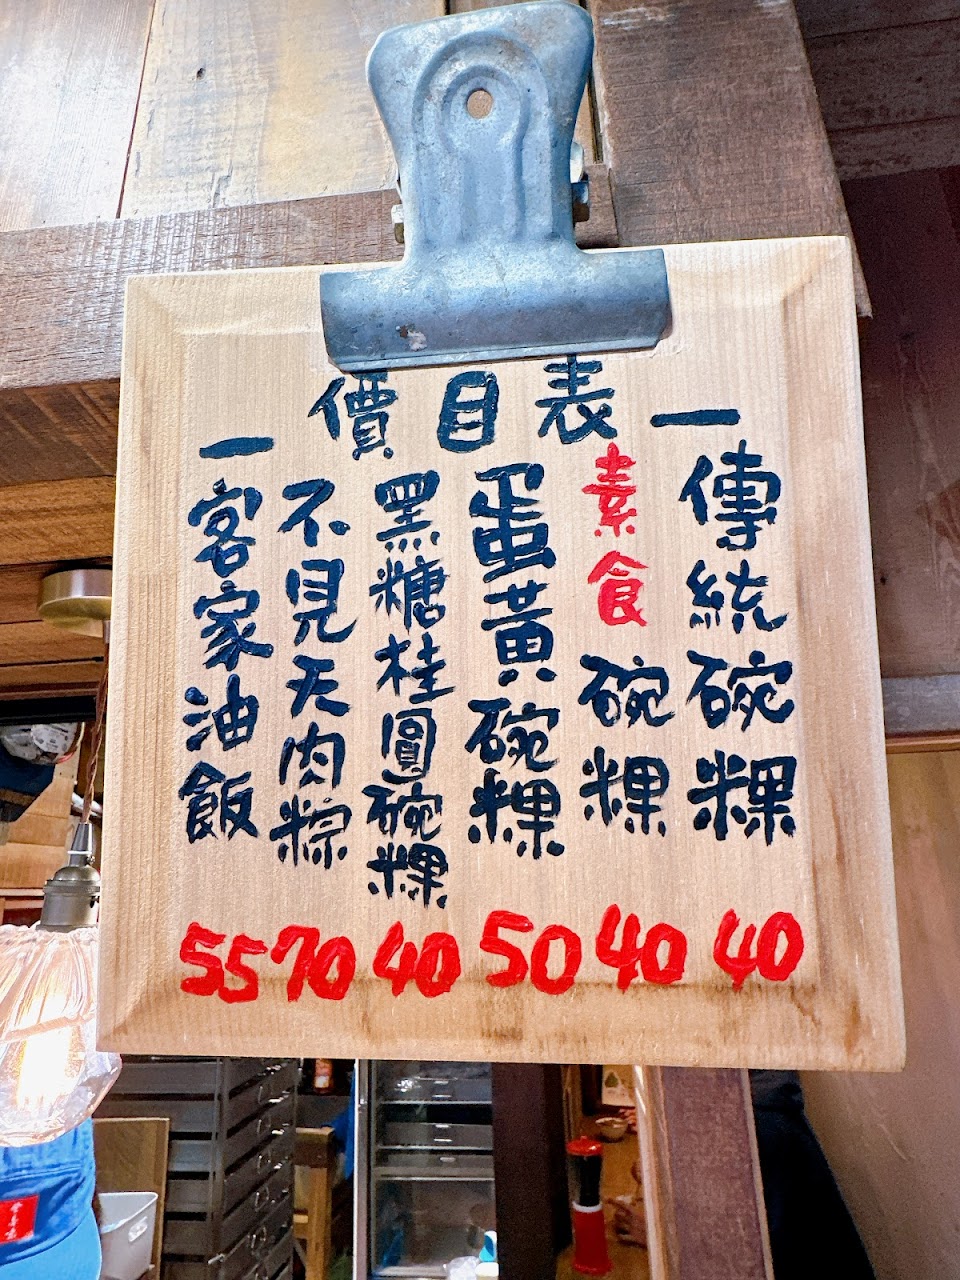 一價目表一
傳統碗粿 40
素食碗粿 40
蛋黃碗粿 50
黑糖桂圓碗粿 40
不見天肉粽 70
客家油飯 55